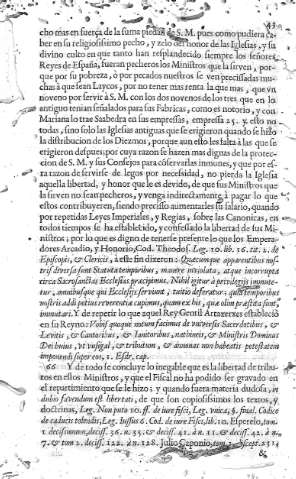 43
cho mas en fuerça de la suma piedad de S. M. pues como pudiera ca-
ber en su religiosissimo pecho, y zelo del honor de las Iglesias, y su
divino culto en que tanto han resplandecido siempre los señores
Reyes de España, fueran pecheros los Ministros que la sirven, por-
que por su pobreza, ò por pecados nuestros se ven precissadas mu-
chas à que sean Laycos, por no tener mas renta la que mas, que un
noveno por servir à S. M. con los dos novenos de los tres que en lo
antiguo tenian señalados para sus Fabricas, como es notorio, y con
Mariana lo trae Saabedra en sus empressas, empressa 25. y esso no
todas, sino solo las Iglesias antiguas que se erigieron quando se hizo
la distribucion de los Diezmos, porque aun esto les falta à las que se
erigieron despues: por cuya razon se hazen mas dignas de la protec-
cion de S. M. y sus Consejos para conservarlas immunes, y que por es-
ta razon de servirse de legos por necessidad, no pierda la Iglesia
aquella libertad, y honor que le es devido, de que sus Ministros que
la sirven no sean pecheros, y venga indirectamente à pagar lo que
estos contribuyeren, siendo preciso aumentarles su salario, quando
por repetidas Leyes Imperiales, y Regias, sobre las Canonicas, en
todos tiempos se ha establetido, y confessado la libertad de sus Mi-
nistros; por lo que es digno de tenerse presente lo que los Empera-
dores Arcadio, y Honorio, Cod. Theodos. Leg. 10. lib. 16. tit. 2. de
Episcopis, & Clericis, à este fin dizeron: Quæcumque apparentibus nos-
tris diversa sunt Statuta temporibus, manere inviolata, atque incorrupta
circa Sacrosanctas Ecclesias præcipimus. Nihil igitur à privilegijs immute-
tur, omnibusque qui Ecclesijs serviunt, tuitio deferatur: quia temporibus
nostris addi potius reverentiæ cupimus, quam ex his, quæ olim præstita sunt,
immutari. Y de repetir lo que aquel Rey Gentil Artaxerxes estableciò
en su Reyno: Vobis quoque notum facimus de universis Sacerdotibus, &
Levitis, & Cantoribus, & Ianitoribus, nathineis, & Ministris Dominus
Dei huius, ut vectigal, & tributum, & annonas non habeatis potestatem
imponendi super eos, 1. Esdr. cap.
66 Y de todo se concluye lo inegable que es la libertad de tribu-
tos en estos Ministros, y que el Fiscal no ha podido ser gravado en
el repartimiento que se le hizo: y quando fuera materia dudosa, in
dubio favendum est libertati, de que son copiosissimos los textos, y
doctrinas, Leg. Non puto 10. ff. de iure fisci, Leg. unica, §. final. Codice
de caducis tollendis,